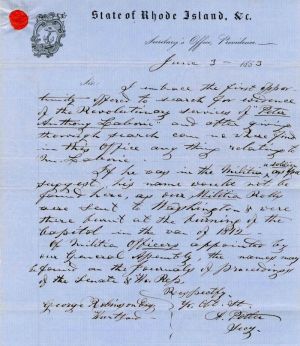 State of Rhode Island, &c.
Secretary's Office, Providence
June 3 - 1853
Sir
I embrace the first oppor
tunity offered to search for evidence
of the Revolutionary services of "Peter
Anthony and after a
thorough search can no where find
in this Office any thing relating to
Mr.
If he was in the Militia, as you
suggest, his name would not be
found here, as our Militia Rolls
were sent to Washington & were
there burnt at the burning of the
Capitol in the war of 1812.
Of Militia Officers appointed by
our General Assembly, the names may
be found on the Journals of proceedings
of the Senate & Ho. Reps.
Respectfully
Yr. Obt. St.
George Robinson Esq
Hartford
Potter
Secy.